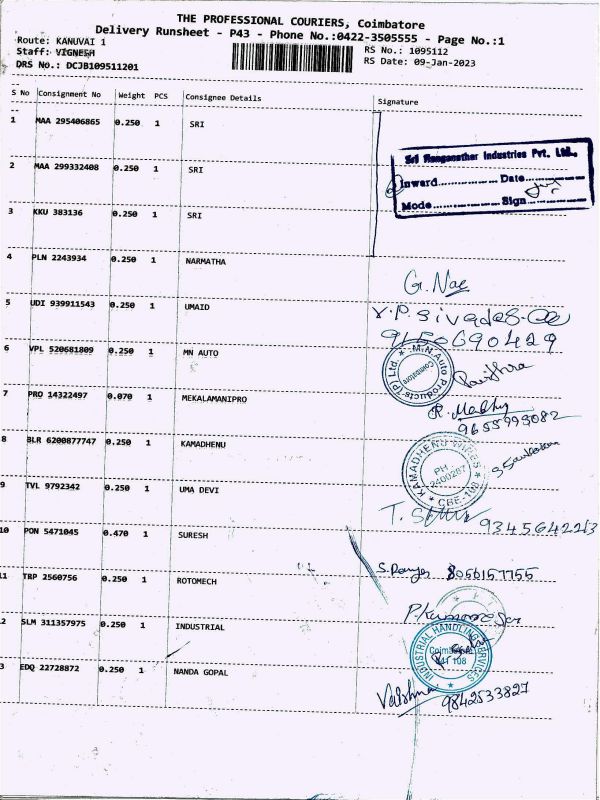 THE PROFESSIONAL COURIERS, Coimbatore
Delivery Runsheet - P43 - Phone No.:0422-3505555 - Page No.:1
Route: KANUVAI 1
RS No.: 1095112
Staff: VIGNESH
RS Date: 09-Jan-2023
DRS No.: DCJB109511201
S No Consignment No Weight PCS Consignee Details Signature
1 MAA 295406865 0.250 1 SRI
Sri Ranganathar Industries Pvt. Ltd.,
2 MAA 299332408 0.250 1 SRI
Inward Date
Mode Sign
3 KKU 383136 0.250 1 SRI
4 PLN 2243934 0.250 1 NARMATHA
5 UDI 939911543 0.250 1 UMAID
9150690429
6 VPL 520681809 0.250 1 MN AUTO
M.N Auto Products (P) Ltd. Coimbatore
Pavithra
7 PRO 14322497 0.070 1 MEKALAMANIPRO
R. Madhu
9655993082
8 BLR 6200877747 0.250 1 KAMADHENU
KAMADHENU WIRES PH 2400287 CBE-108
9 TVL 9792342 0.250 1 UMA DEVI
9345642213
10 PON 5471045 0.470 1 SURESH
11 TRP 2560756 0.250 1 ROTOMECH
8056157755
12 SLM 311357975 0.250 1 INDUSTRIAL
INDUSTRIAL HANDLING SERVICES Coimbatore 641 108
13 EDQ 22728872 0.250 1 NANDA GOPAL
9842533827